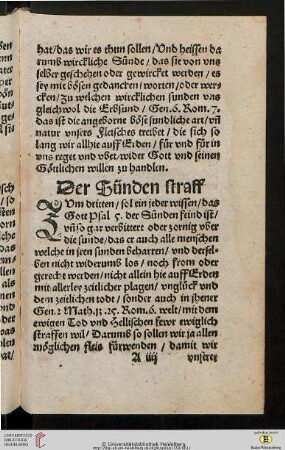 hat/das wir es thun sollen/Vnd heissen da
rumb wirckliche Sünde/das sie von vns
selber geschehen oder gewircket werden/es
sey mit bösen gedancken/worten/oder wer⸗
cken/Zu welchen wircklichen sunden vns
gleich wol die Erbsünd/Gen. 6. Rom. 7.
das ist die angeborne böse sundliche art/vñ
natur vnsers fleisches treibet/die sich so
lang wir allhie auff Erden/für vnd für in
vns reget vnd vbet/wider Gott vnd seinen
Göttlichen willen zu handlen.
Der Sünden straff
ZVm dritten/sol ein jeder wissen/das
Gott Psal 5. der Sünden feind ist/
vñ so gar verbittert oder zornig vber
die sunde/das er auch alle menschen
welche in jren sunden beharren/vnd dersel⸗
ben nicht widerumb los/noch from oder
gerecht werden/nicht allein hie auff Erden
mit allerley zeitlicher plagen/vnglück vnd
dem zeitlichen todt/sonder auch in jhener
Gen. 2 Math. 13. 25. Rom. 6. welt/mit dem
ewigen Tod vnd Hellischen fewr ewiglich
straffen wil/Darumb so sollen wir ja allen
möglichen fleis fürwenden/damit wir
A iiij vnserer
UNIVERSITÄTS-
BIBLIOTHEK
HEIDELBERG
© Universitätsbibliothek Heidelberg
gefördert durch die